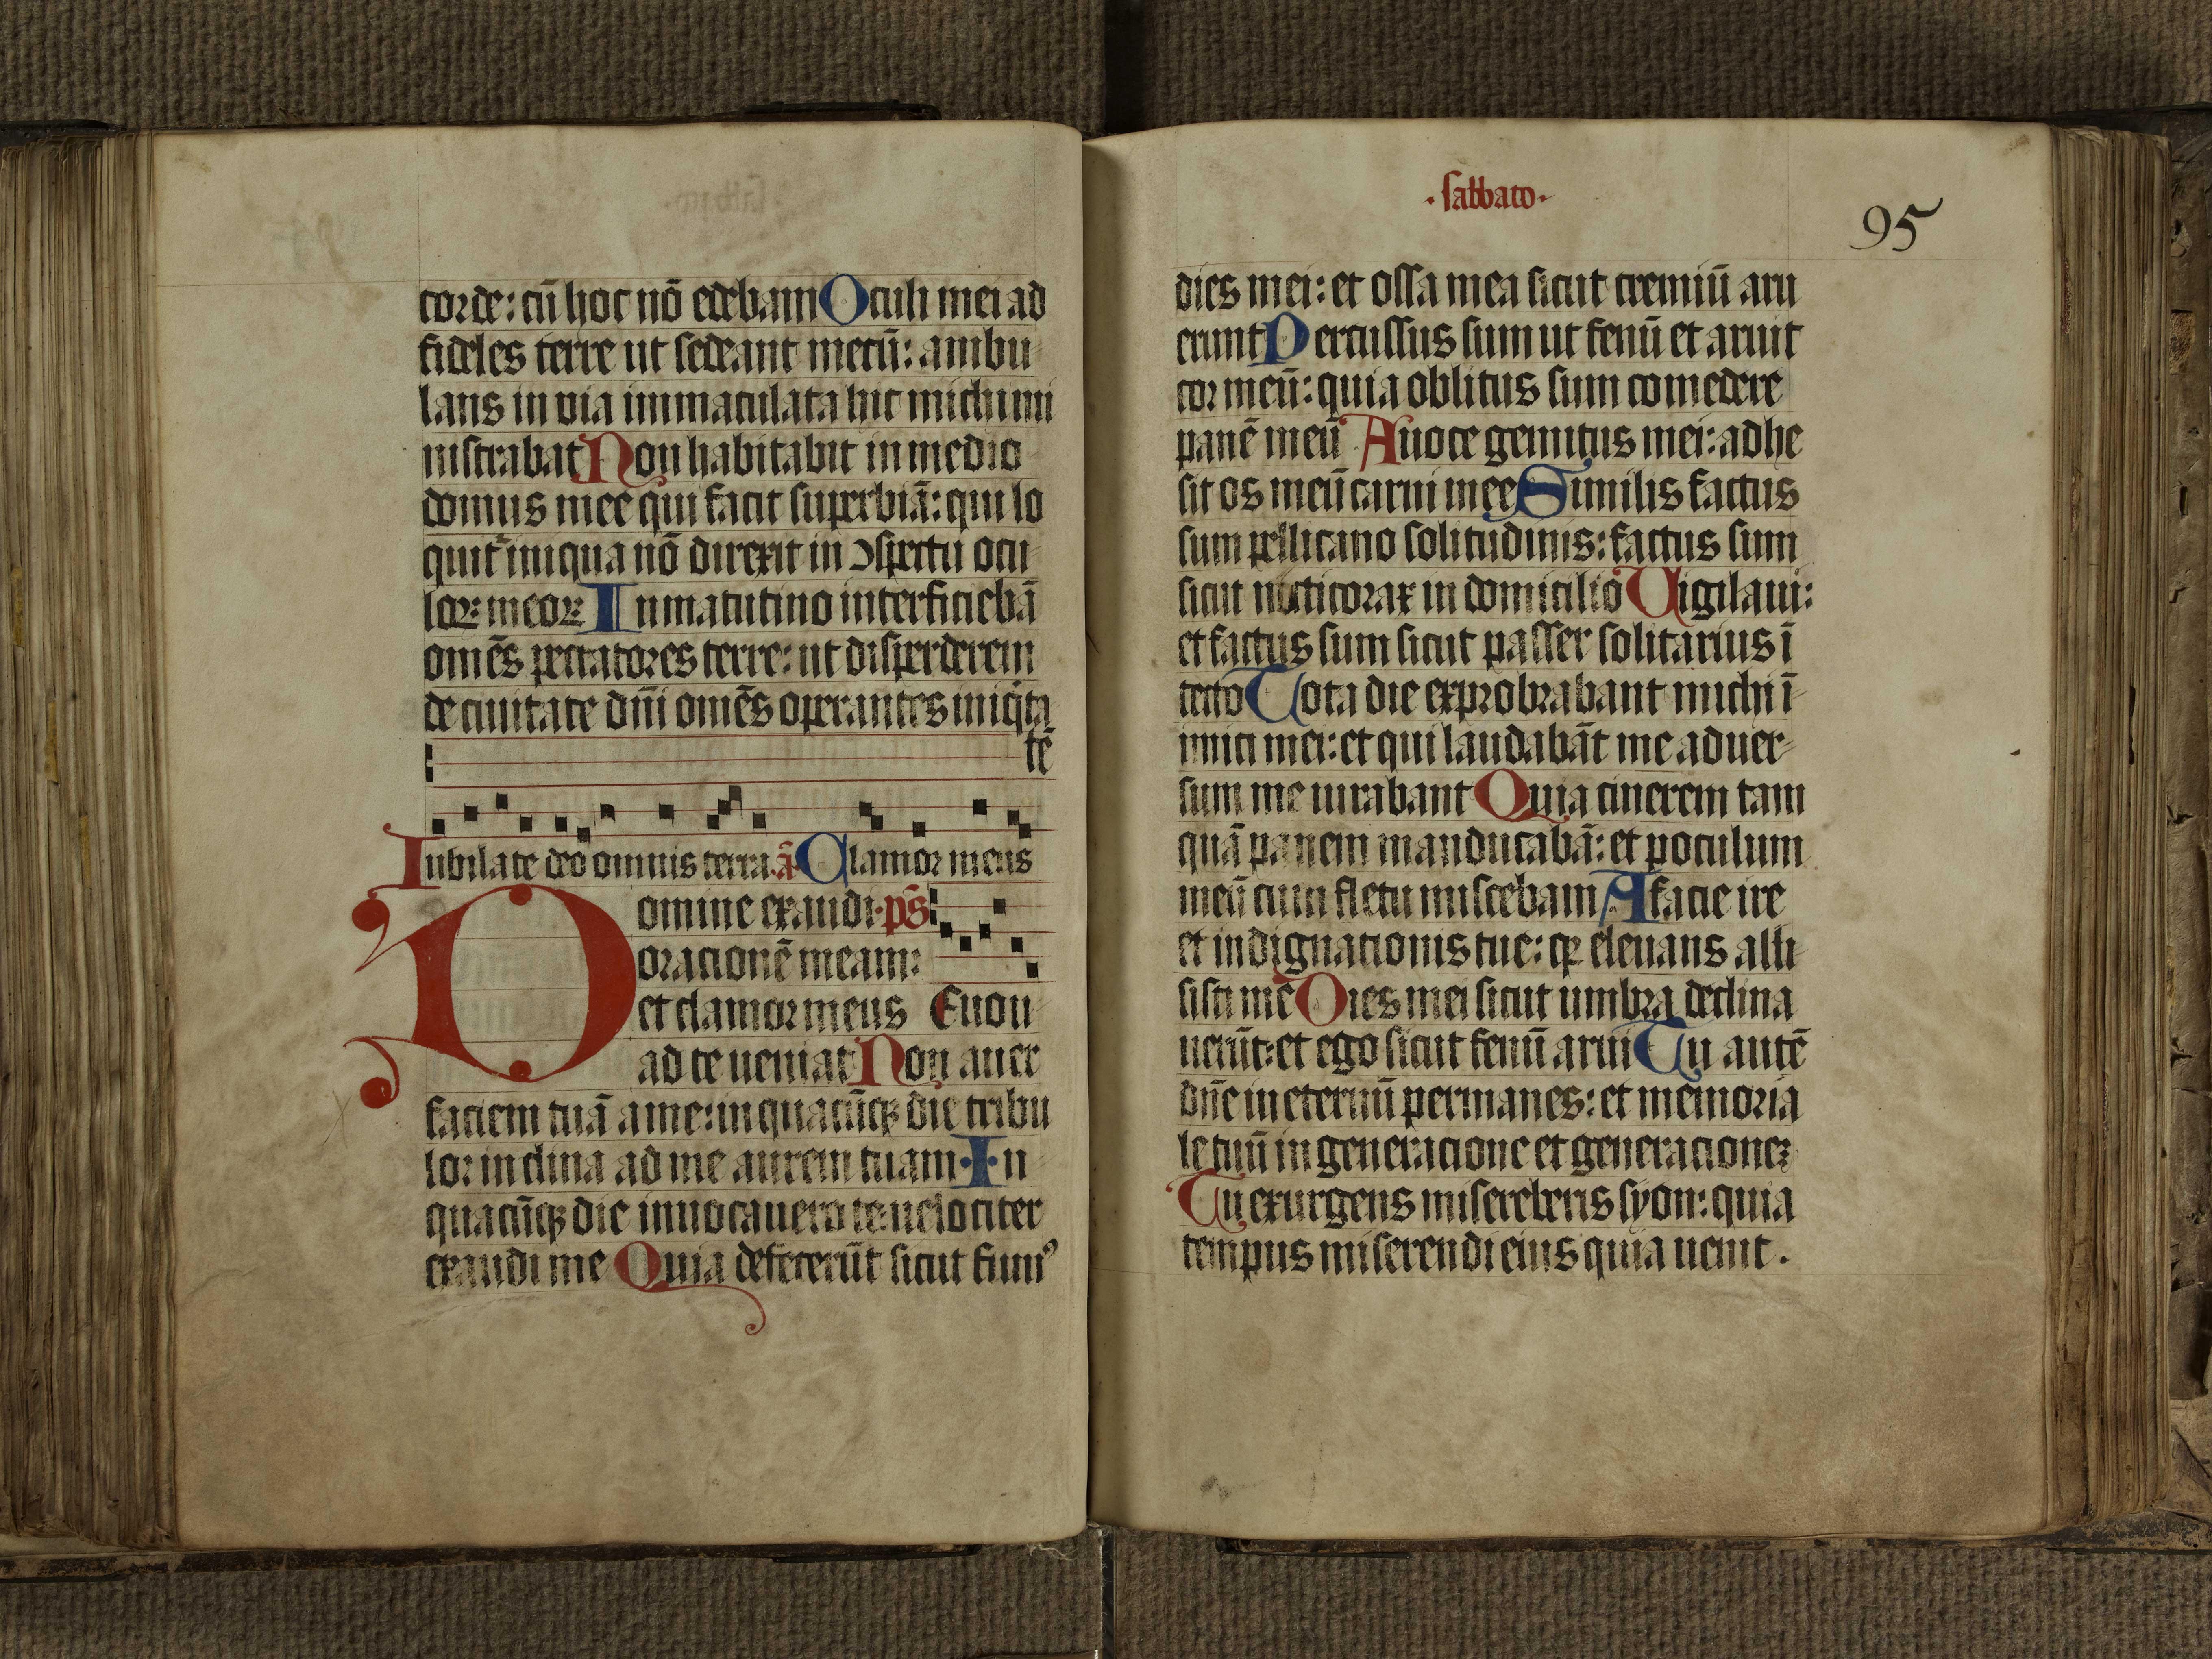 corde: cū hoc nō edebam Oculi mei ad
fideles terre ut sedeant mecū: ambu
lans in via immaculata hic michi mi
nistrabat Non habitabit in medio
domus mee qui facit superbiā: qui lo
quit᷑ iniqua nō direxit in ꝯspectu ocu
loꝝ meoꝝ In matutino interficiebā
om̄es peccatores terre: ut disperderem
de civitate dn̄i om̄es operantes iniq̇ta
tē
Iubilate deo omnis terra. ā Clamor meus
Domine exaudi. ps̄
orationē meam:
et clamor meus Euou
ad te ueniat Non auer
faciem tuā a me: in quacūqꝫ die tribu
lor inclina ad me aurem tuam. In
quacūqꝫ die inuocauero te: uelociter
exaudi me Quia defecerūt sicut fumꝰ
·sabbato·
95
dies mei: et ossa mea sicut cremiū aru
erunt Percussus sum ut fenū et aruit
cor meū: quia oblitus sum comedere
panē meū A uoce gemitus mei: adhe
sit os meū carni mee Similis factus
sum pellicano solitudinis: factus sum
sicut nicticorax in domicilio Uigilaui:
et factus sum sicut passer solitarius ī
tecto Tota die exprobrabant michi ī
imici mei: et qui laudabāt me aduer
sum me iurabant Quia cinerem tam
quā panem manducabā: et poculum
meū cum fletu miscebam A facie ire
et indignationis tue: qꝛ eleuans alli
sisti me Dies mei sicut umbra declina
uerūt: et ego sicut fenū arui Tu autē
dn̄e in eternū permanes: et memoria
le tuū in generatione et generationeꝫ
Tu exurgens misereberis syon: quia
tempus miserendi eius quia uenit.